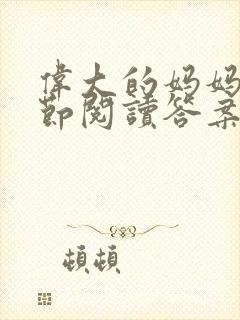 偉大的媽媽
節閱讀答案
頓頓